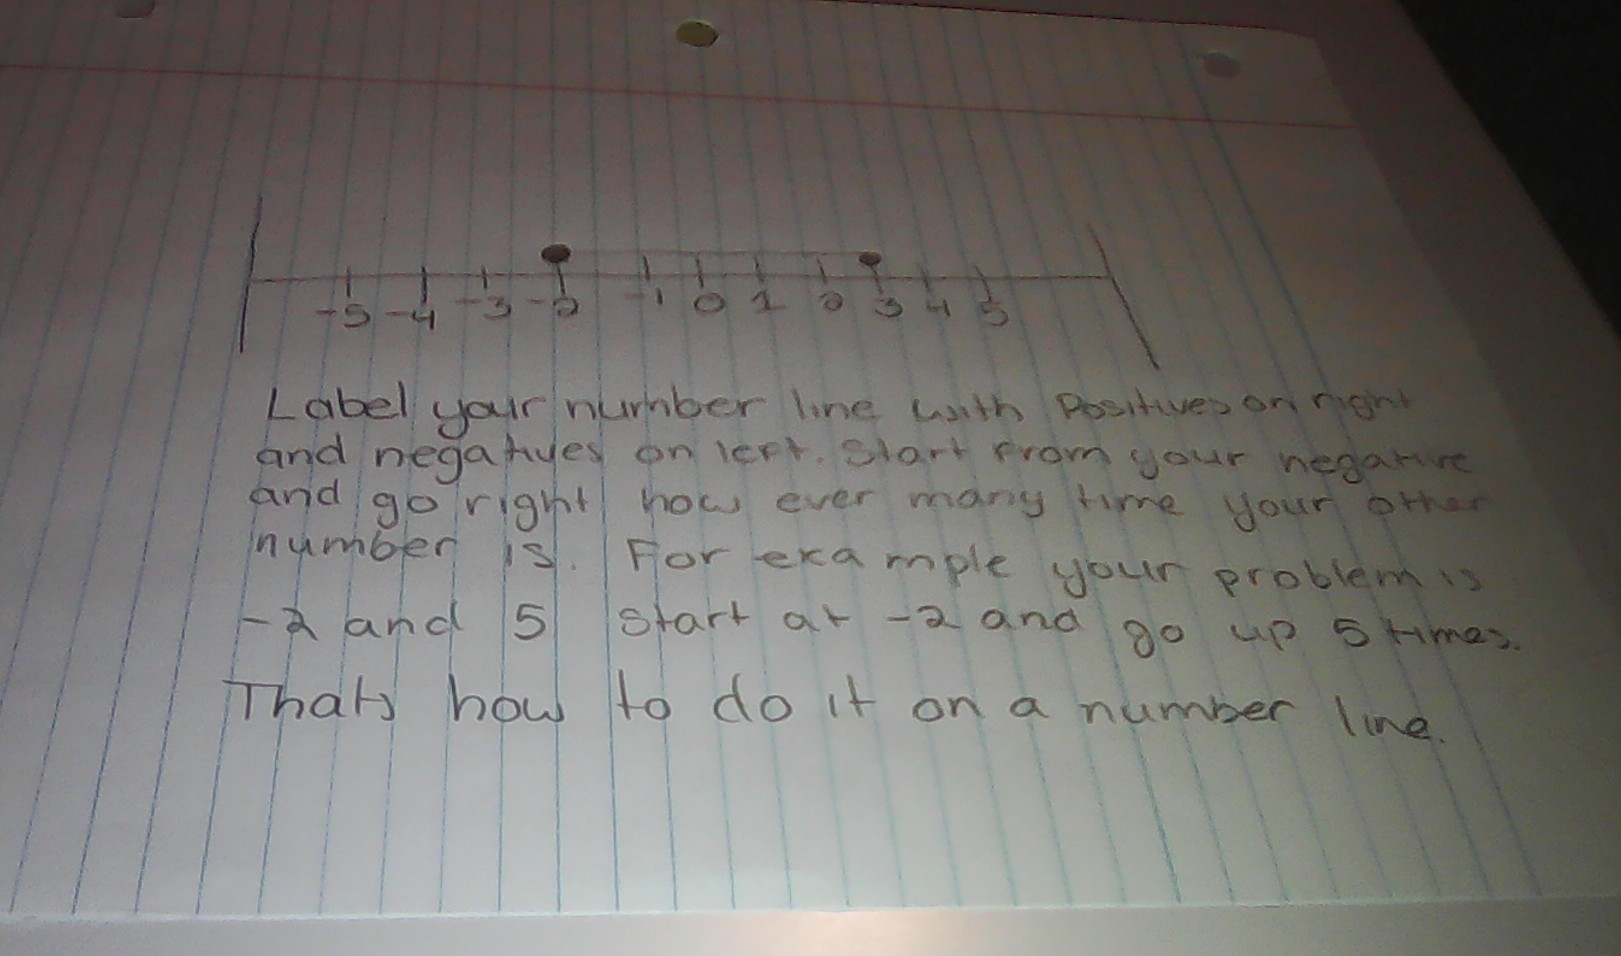 -5 -4 -3 -2 -1 0 1 2 3 4 5
Label your number line with Positives on right
and negatives on left. Start from your negative
and go right how ever many time your other
number is. For example your problem is
-2 and 5 start at -2 and go up 5 times.
Thats how to do it on a number line.